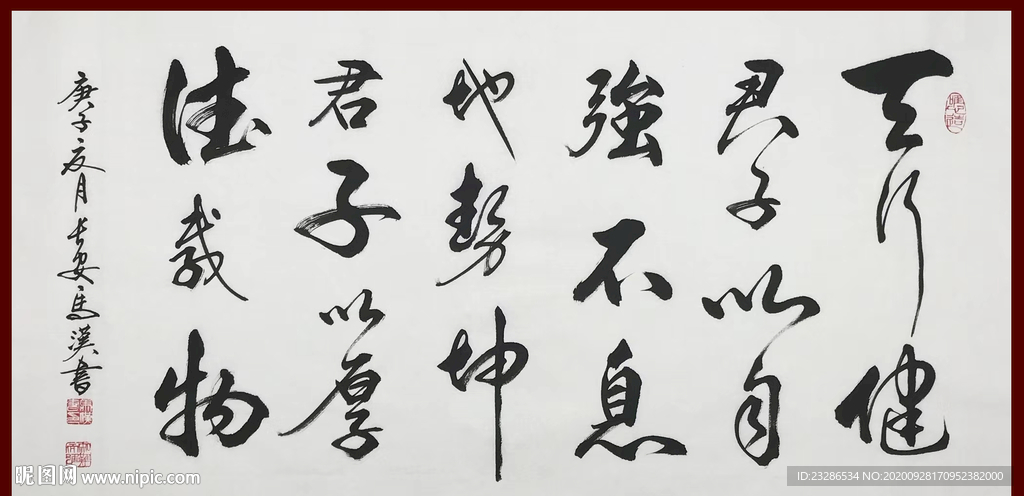 天行健
君子以自
強不息
地势坤
君子以厚
德载物
庚子夏月長安馬漢書
昵图网 www.nipic.com
ID:23286534 NO:20200928170952382000